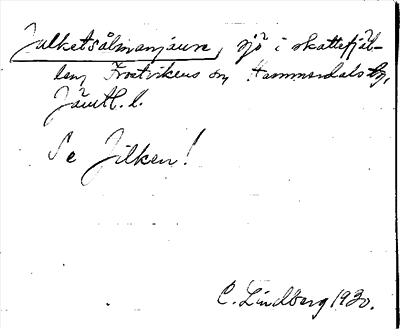 Jalketsålmanjaure, sjö i skattefjäl-
len, Frostvikens sn, Hammerdals tg,
Jämtl. l.
Se Jilken!
C. Lindberg 1930.